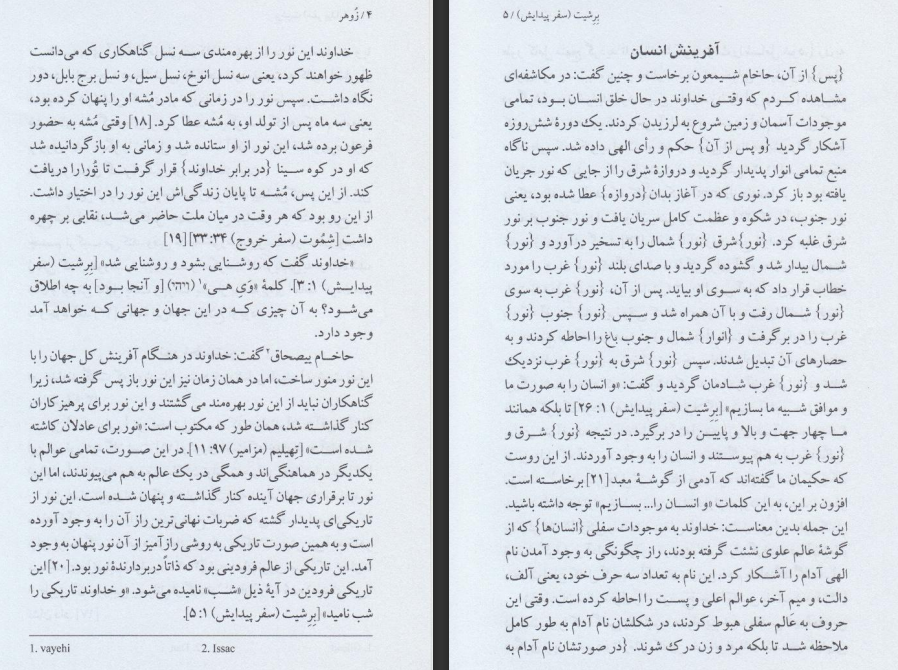 ۴ / زُوهر
خداوند این نور را از بهره‌مندی سه نسل گناهکاری که می‌دانست
ظهور خواهند کرد، یعنی سه نسل انوخ، نسل سیل، و نسل برج بابل، دور
نگاه داشت. سپس نور را در زمانی که مادر مُشه او را پنهان کرده بود،
یعنی سه ماه پس از تولد او، به مُشه عطا کرد. [۱۸] وقتی مُشه به حضور
فرعون برده شد، این نور از او ستانده شد و زمانی به او بازگردانیده شد
که او در کوه سینا {در برابر خداوند} قرار گرفت تا تُورا را دریافت
کند. از این پس، مُشه تا پایان زندگی‌اش این نور را در اختیار داشت.
از این رو بود که هر وقت در میان ملت حاضر می‌شد، نقابی بر چهره
داشت [شِمُوت (سفر خروج) ۳۴: ۳۳] [۱۹]
«خداوند گفت که روشنایی بشود و روشنایی شد» [بِرِشیت (سفر
پیدایش) ۱: ۳]. کلمهٔ «وَیِ هی»۱ (ויהי) [و آنجا بود] به چه اطلاق
می‌شود؟ به آن چیزی که در این جهان و جهانی که خواهد آمد
وجود دارد.
حاخام ییصحاق۲ گفت: خداوند در هنگام آفرینش کل جهان را با
این نور منور ساخت، اما در همان زمان نیز این نور باز پس گرفته شد، زیرا
گناهکاران نباید از این نور بهره‌مند می‌گشتند و این نور برای پرهیزکاران
کنار گذاشته شد، همان طور که مکتوب است: «نور برای عادلان کاشته
شده است» [تِهیلیم (مزامیر) ۹۷: ۱۱]. در این صورت، تمامی عوالم با
یکدیگر در هماهنگی‌اند و همگی در یک عالم به هم می‌پیوندند، اما این
نور تا برقراری جهان آینده کنار گذاشته و پنهان شده است. این نور از
تاریکی‌ای پدیدار گشته که ضربات نهانی‌ترین راز آن را به وجود آورده
است و به همین صورت تاریکی به روشی رازآمیز از آن نور پنهان به وجود
آمد. این تاریکی از عالم فرودینی بود که ذاتاً دربردارندهٔ نور بود. [۲۰] این
تاریکی فرودین در آیهٔ ذیل «شب» نامیده می‌شود. «و خداوند تاریکی را
شب نامید» [بِرِشیت (سفر پیدایش) ۱: ۵].
1. vayehi 2. Issac
بِرِشیت (سفر پیدایش) / ۵
آفرینش انسان
{پس} از آن، حاخام شیمعون برخاست و چنین گفت: در مکاشفه‌ای
مشاهده کردم که وقتی خداوند در حال خلق انسان بود، تمامی
موجودات آسمان و زمین شروع به لرزیدن کردند. یک دورهٔ شش‌روزه
آشکار گردید {و پس از آن} حکم و رأی الهی داده شد. سپس ناگاه
منبع تمامی انوار پدیدار گردید و دروازهٔ شرق را از جایی که نور جریان
یافته بود باز کرد. نوری که در آغاز بدان {دروازه} عطا شده بود، یعنی
نور جنوب، در شکوه و عظمت کامل سریان یافت و نور جنوب بر نور
شرق غلبه کرد. {نور} شرق {نور} شمال را به تسخیر درآورد و {نور}
شمال بیدار شد و گشوده گردید و با صدای بلند {نور} غرب را مورد
خطاب قرار داد که به سوی او بیاید. پس از آن، {نور} غرب به سوی
{نور} شمال رفت و با آن همراه شد و سپس {نور} جنوب {نور}
غرب را در بر گرفت و {انوار} شمال و جنوب باغ را احاطه کردند و به
حصارهای آن تبدیل شدند. سپس {نور} شرق به {نور} غرب نزدیک
شد و {نور} غرب شادمان گردید و گفت: «و انسان را به صورت ما
و موافق شبیه ما بسازیم» [بِرِشیت (سفر پیدایش) ۱: ۲۶] تا بلکه همانند
ما چهار جهت و بالا و پایین را در برگیرد. در نتیجه {نور} شرق و
{نور} غرب به هم پیوستند و انسان را به وجود آوردند. از این روست
که حکیمان ما گفته‌اند که آدمی از گوشهٔ معبد [۲۱] برخاسته است.
افزون بر این، به این کلمات «و انسان را... بسازیم» توجه داشته باشید.
این جمله بدین معناست: خداوند به موجودات سفلی {انسان‌ها} که از
گوشهٔ عالم علوی نشئت گرفته بودند، راز چگونگی به وجود آمدن نام
الهی آدام را آشکار کرد. این نام به تعداد سه حرف خود، یعنی آلف،
دالت، و میم آخر، عوالم اعلی و پست را احاطه کرده است. وقتی این
حروف به عَالم سفلی هبوط کردند، در شکلشان نام آدام به طور کامل
ملاحظه شد تا بلکه مرد و زن درک شوند. {در صورتشان نام آدام به